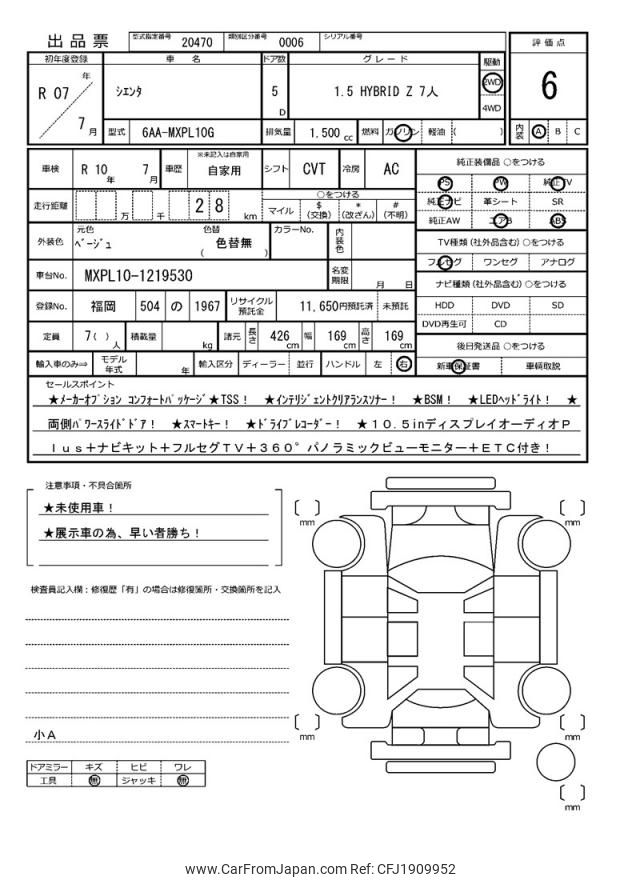 出品票 型式指定番号 20470 類別区分番号 0006 シリアル番号
評価点
初年度登録 車名 ドア数 グレード 駆動
R 07 年 7 月 シエンタ 5 D 1.5 HYBRID Z 7人 2WD 4WD
6
型式 6AA-MXPL10G 排気量 1,500 cc 燃料 ガソリン 軽油 ( )
内装 A B C
車検 R 10 年 7 月 車歴 ※未記入は自家用 自家用 シフト CVT 冷房 AC
純正装備品 ○をつける
PS PW 純正TV
純正ナビ 革シート SR
純正AW エアB ABS
走行距離 万 千 2 8 km ○をつける
マイル $(交換) *(改ざん) #(不明)
TV種類 (社外品含む) ○をつける
フルセグ ワンセグ アナログ
外装色 元色 ベージュ 色替 ( 色替無 ) カラーNo. 内装色
車台No. MXPL10-1219530 名変期限 月 日
ナビ種類 (社外品含む) ○をつける
HDD DVD SD
DVD再生可 CD
登録No. 福岡 504 の 1967 リサイクル預託金 11,650円預託済 未預託
定員 7( ) 人 積載量 kg 諸元 長さ 426 cm 幅 169 cm 高さ 169 cm
後日発送品 ○をつける
新車保証書 車輌取説
輸入車のみ⇒ モデル年式 年 輸入区分 ディーラー 並行 ハンドル 左 右
セールスポイント
★メーカーオプション コンフォートパッケージ★TSS! ★インテリジェントクリアランスソナー! ★BSM! ★LEDヘッドライト! ★
両側パワースライドドア! ★スマートキー! ★ドライブレコーダー! ★10.5inディスプレイオーディオP
lus+ナビキット+フルセグTV+360°パノラミックビューモニター+ETC付き!
注意事項・不具合箇所
★未使用車!
★展示車の為、早い者勝ち!
検査員記入欄:修復歴「有」の場合は修復箇所・交換箇所を記入
小A
ドアミラー キズ ヒビ ワレ
工具 無 ジャッキ 無
mm
mm
mm
mm
mm
www.CarFromJapan.com Ref: CFJ1909952